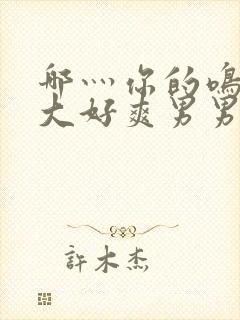 哪灬你的鳴
大好爽男男
許木杰